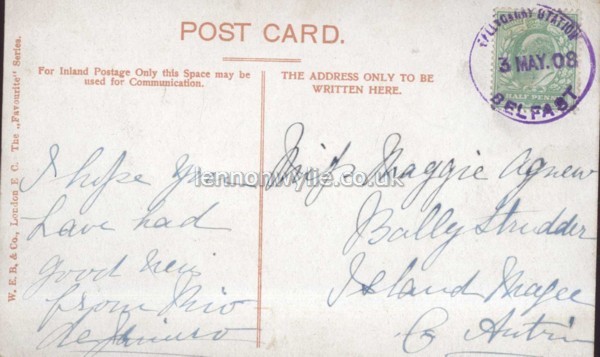 POST CARD.
For Inland Postage Only this Space may be
used for Communication.
THE ADDRESS ONLY TO BE
WRITTEN HERE.
W. E. B. & Co., London E. C. The „Favourite" Series.
STATION
3 MAY. 08
BELFAST
HALF PENNY
lennonwylie.co.uk
I hope you
have had
good news
from Rio
de Janiero
Miss Maggie Agnew
Bally Strudder
Island Magee
Co Antrim